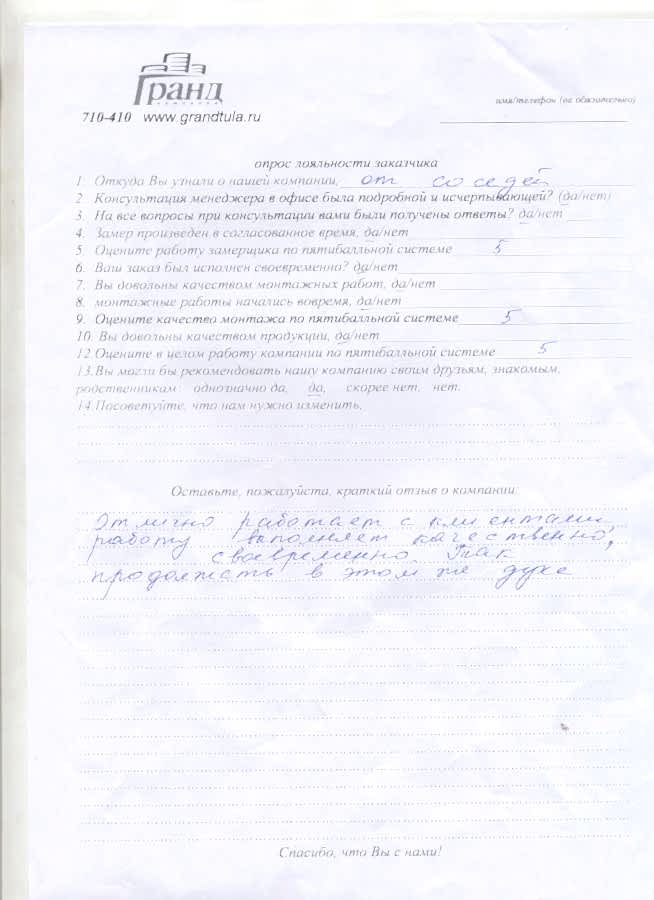 Гранд
компания
710-410 www.grandtula.ru
имя/телефон (не обязательно)
опрос лояльности заказчика
1. Откуда Вы узнали о нашей компании, от соседей
2. Консультация менеджера в офисе была подробной и исчерпывающей? (да/нет)
3. На все вопросы при консультации вами были получены ответы? да/нет
4. Замер произведен в согласованное время, да/нет
5. Оцените работу замерщика по пятибалльной системе 5
6. Ваш заказ был исполнен своевременно? да/нет
7. Вы довольны качеством монтажных работ, да/нет
8. монтажные работы начались вовремя, да/нет
9. Оцените качество монтажа по пятибалльной системе 5
10. Вы довольны качеством продукции, да/нет
12.Оцените в целом работу компании по пятибалльной системе 5
13.Вы могли бы рекомендовать нашу компанию своим друзьям, знакомым,
родственникам: однозначно да, да, скорее нет, нет.
14.Посоветуйте, что нам нужно изменить,
Оставьте, пожалуйста, краткий отзыв о компании:
Отлично работает с клиентами,
работу выполняет качественно,
своевременно. Так
продолжать в этом же духе
Спасибо, что Вы с нами!